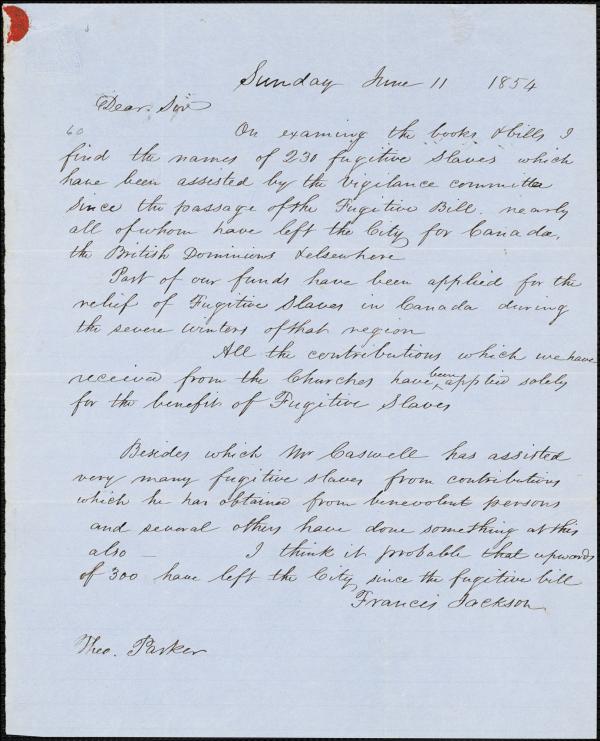 Sunday June 11 1854
Dear Sir
60
On examining the books & bills I
find the names of 230 fugitive Slaves which
have been assisted by the Vigilance committe
Since the passage of the Fugitive Bill. nearly
all of whom have left the City for Canada,
the British Dominions & elsewhere
Part of our funds have been applied for the
relief of Fugitive Slaves in Canada during
the severe winters of that region
All the contributions which we have
received from the Churches have been applied solely
for the benefit of Fugitive Slaves
Besides which Mr Caswell has assisted
very many fugitive slaves from contributions
which he has obtained from benevolent persons
and several others have done something at this
also — I think it probable that upwards
of 300 have left the City since the fugitive bill
Francis Jackson
Theo. Parker